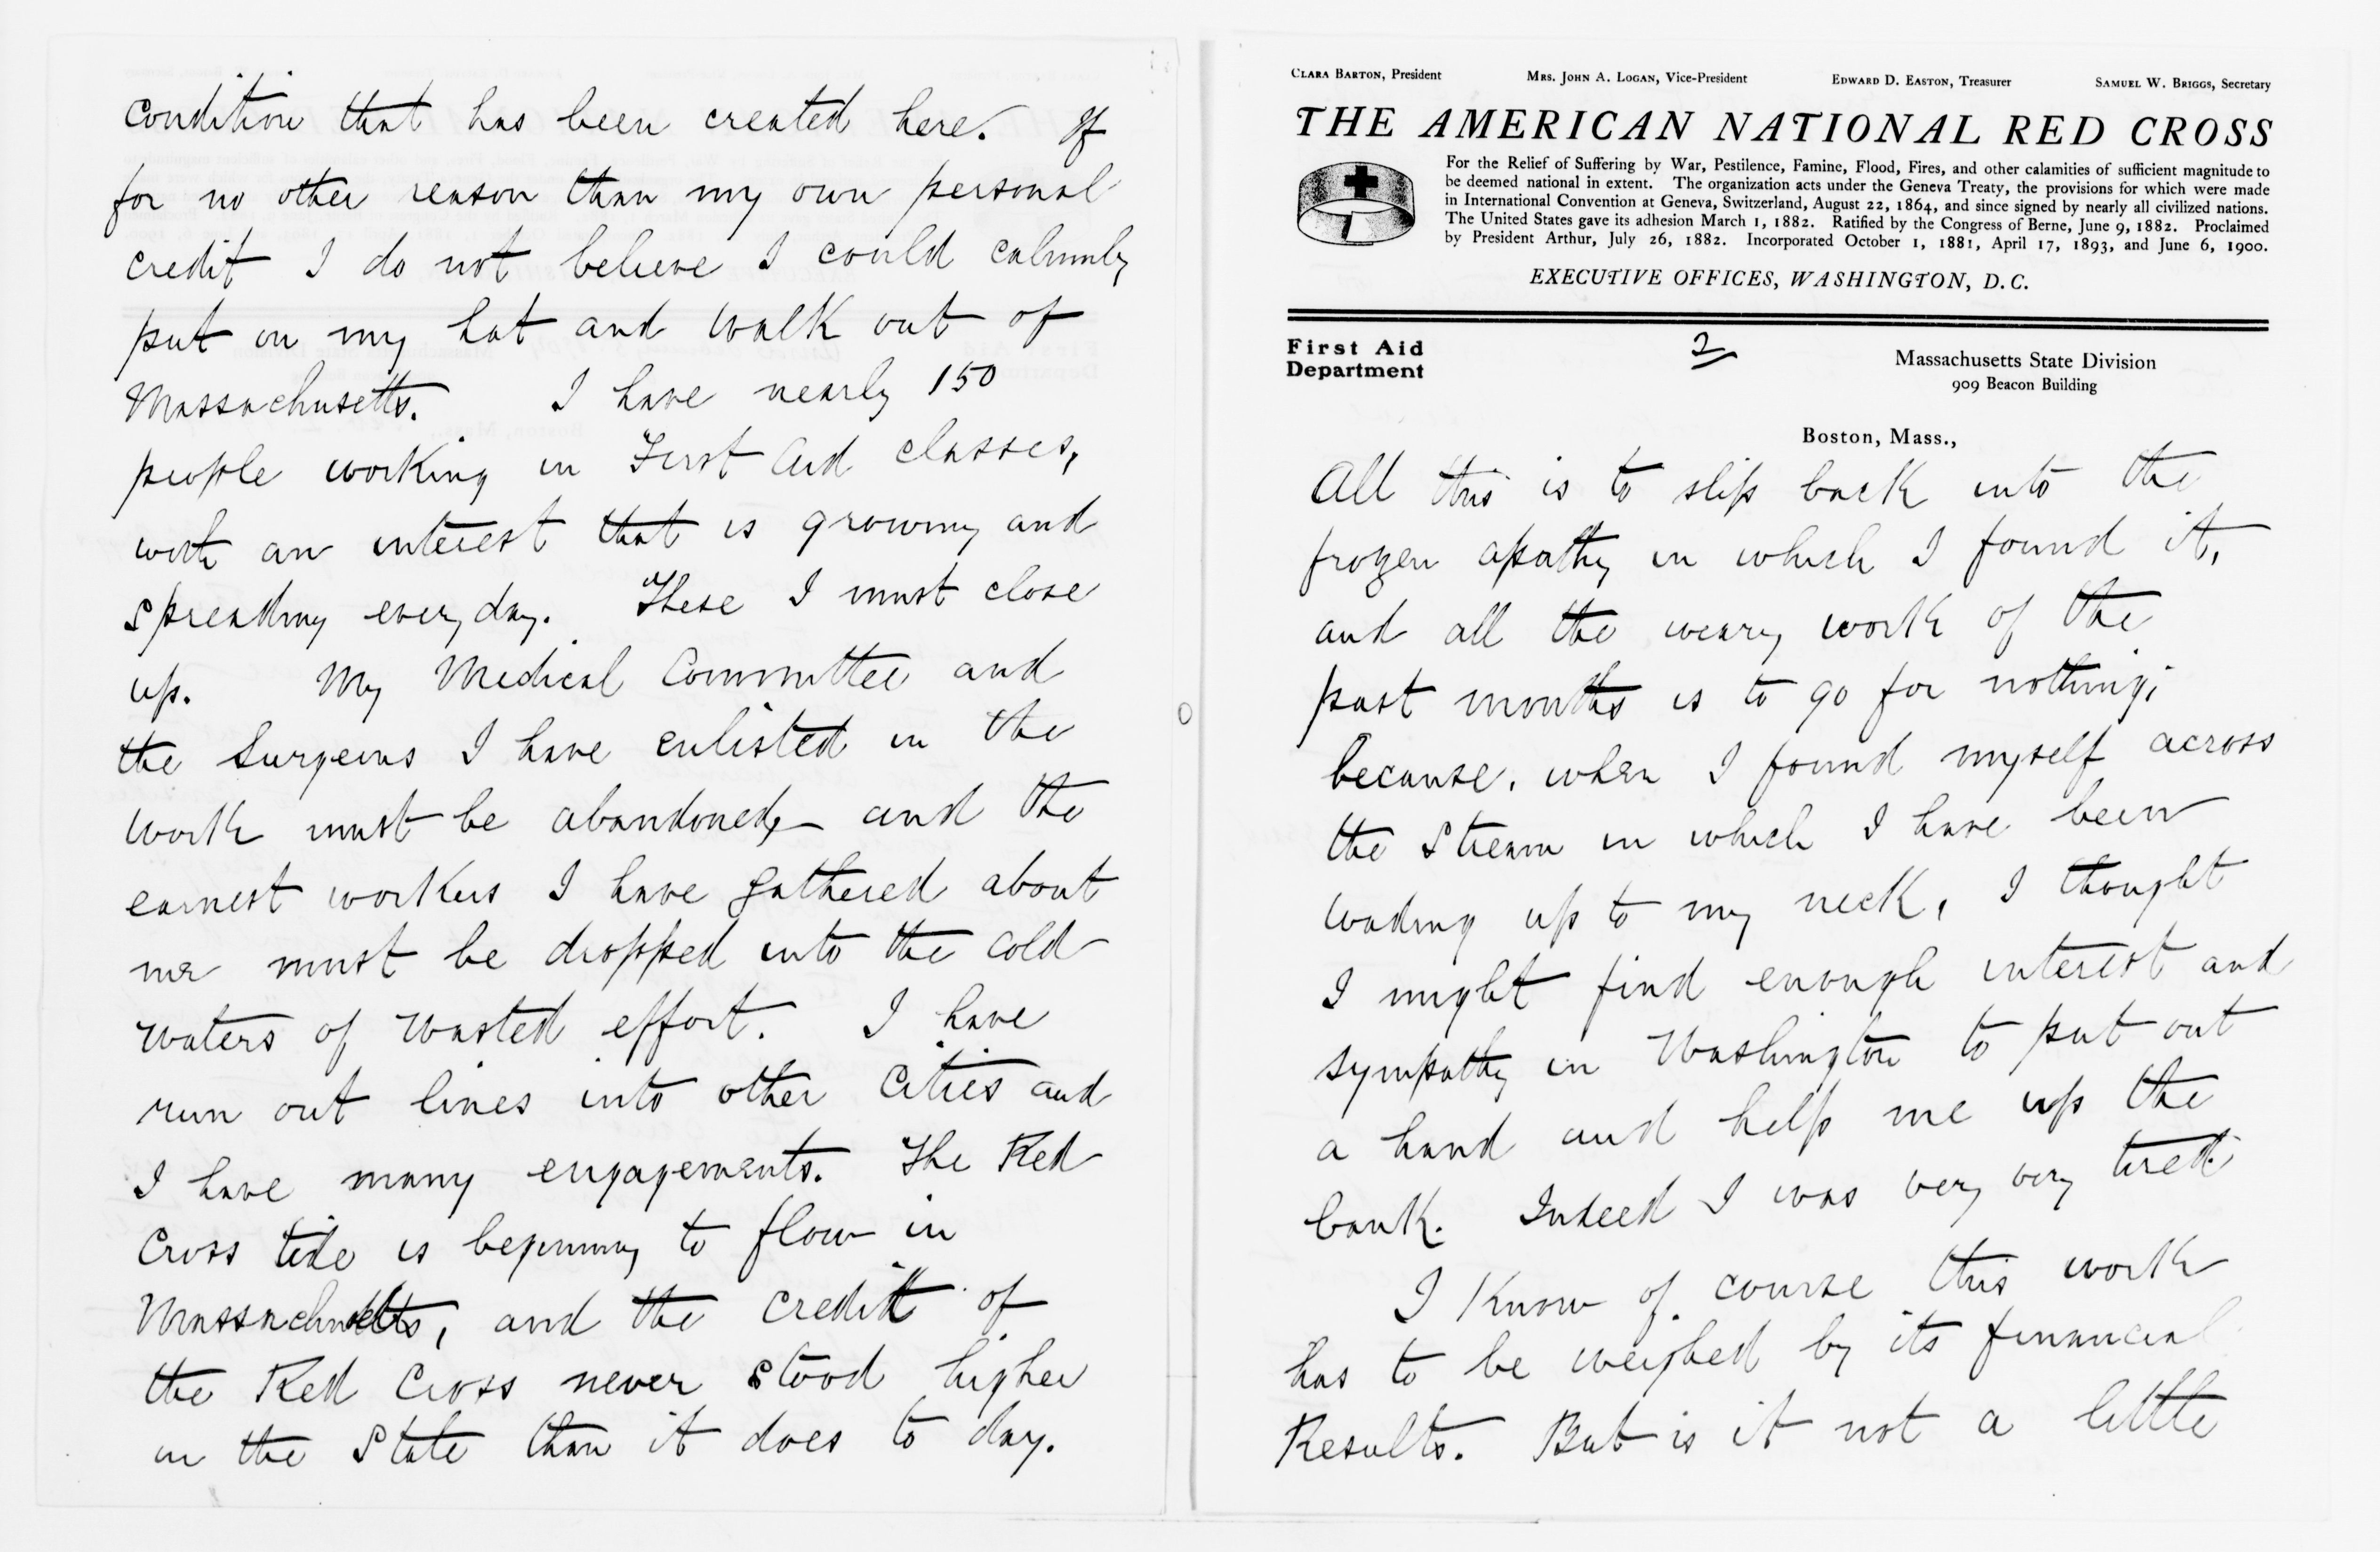 condition that has been created here. If
for no other reason than my own personal
credit I do not believe I could calmly
put on my hat and walk out of
Massachusetts. I have nearly 150
people working in First Aid classes,
with an interest that is growing and
spreading every day. These I must close
up. My Medical Committee and
the Surgeons I have enlisted in the
work must be abandoned, and the
earnest workers I have gathered about
me must be dropped into the cold
waters of wasted effort. I have
run out lines into other Cities and
I have many engagements. The Red
Cross tide is beginning to flow in
Massachusetts, and the credit of
the Red Cross never stood higher
in the State than it does to day.
CLARA BARTON, President MRS. JOHN A. LOGAN, Vice-President EDWARD D. EASTON, Treasurer SAMUEL W. BRIGGS, Secretary
THE AMERICAN NATIONAL RED CROSS
For the Relief of Suffering by War, Pestilence, Famine, Flood, Fires, and other calamities of sufficient magnitude to
be deemed national in extent. The organization acts under the Geneva Treaty, the provisions for which were made
in International Convention at Geneva, Switzerland, August 22, 1864, and since signed by nearly all civilized nations.
The United States gave its adhesion March 1, 1882. Ratified by the Congress of Berne, June 9, 1882. Proclaimed
by President Arthur, July 26, 1882. Incorporated October 1, 1881, April 17, 1893, and June 6, 1900.
EXECUTIVE OFFICES, WASHINGTON, D.C.
First Aid
Department
2
Massachusetts State Division
909 Beacon Building
Boston, Mass.,
All this is to slip back into the
frozen apathy in which I found it,
and all the weary work of the
past months is to go for nothing;
because, when I found myself across
the Stream in which I have been
wading up to my neck, I thought
I might find enough interest and
sympathy in Washington to put out
a hand and help me up the
bank. Indeed I was very very tired.
I know of course this work
has to be weighed by its financial
Results. But is it not a little